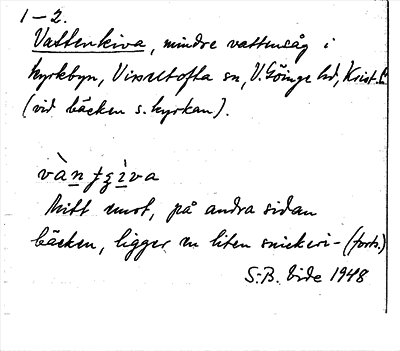 1-2.
Vattenkiva, mindre vattensåg i
kyrkbyn, Visseltofta sn, V. Göinge hd, Krist. l.
(vid bäcken s. kyrkan).
Mitt emot, på andra sidan
bäcken, ligger en liten snickeri- (forts.)
S.B. Vide 1948